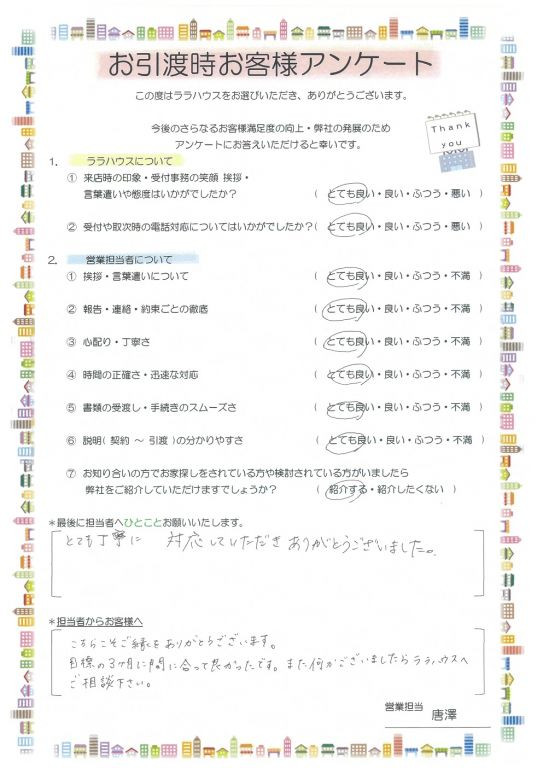 お引渡時お客様アンケート
この度はララハウスをお選びいただき、ありがとうございます。
今後のさらなるお客様満足度の向上・弊社の発展のため
アンケートにお答えいただけると幸いです。
Thank
you
1. ララハウスについて
① 来店時の印象・受付事務の笑顔 挨拶・
言葉遣いや態度はいかがでしたか? ( とても良い・良い・ふつう・悪い )
② 受付や取次時の電話対応についてはいかがでしたか?( とても良い・良い・ふつう・悪い )
2. 営業担当者について
① 挨拶・言葉遣いについて ( とても良い・良い・ふつう・不満 )
② 報告・連絡・約束ごとの徹底 ( とても良い・良い・ふつう・不満 )
③ 心配り・丁寧さ ( とても良い・良い・ふつう・不満 )
④ 時間の正確さ・迅速な対応 ( とても良い・良い・ふつう・不満 )
⑤ 書類の受渡し・手続きのスムーズさ ( とても良い・良い・ふつう・不満 )
⑥ 説明( 契約 ～ 引渡 )の分かりやすさ ( とても良い・良い・ふつう・不満 )
⑦ お知り合いの方でお家探しをされている方や検討されている方がいましたら
弊社をご紹介していただけますでしょうか? ( 紹介する・紹介したくない )
*最後に担当者へひとことお願いいたします。
とても丁寧に 対応していただき ありがとうございました。
*担当者からお客様へ
こちらこそご縁をありがとうございます。
目標の3ヶ月に間に合って良かったです。また何かございましたらララハウスへ
ご相談下さい。
営業担当 唐澤